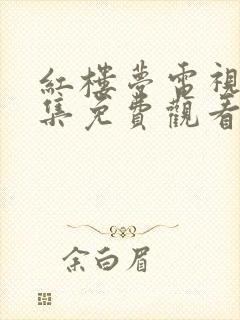 紅樓夢電視
集免費觀看
余白眉